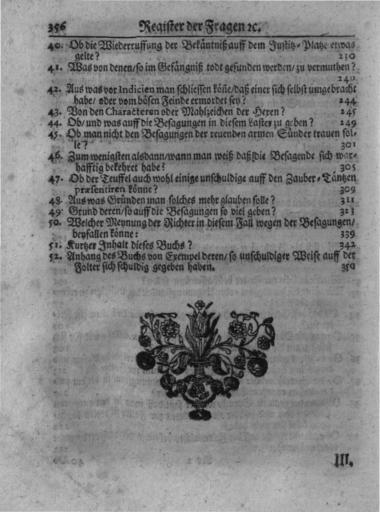 356 Register der Fragen ꝛc.
40. Ob die Wiederruffung der Bekäntniß auff dem Justitz-Platze etwas
gelte? 230
41. Was von denen/ so im Gefängniß todt gefunden werden/ zu vermuthen?
240
42. Aus was vor Indicien man schliessen köñe/ daß einer sich selbst umgebracht
habe/ oder vom bösen Feinde ermordet sey? 244
43. Von den Characteren oder Mahlzeichen der Hexen? 245
44. Ob/ und was auff die Besagungen in diesem Laster zu geben? 249
45. Ob man nicht den Besagungen der reuenden armen Sünder trauen sol-
le? 301
46. Zum wenigsten alsdann/ wann man weiß daß die Besagende sich war-
hafftig bekehret habe? 305
47. Ob der Teuffel auch wohl einige unschuldige auff den Zauber-Täntzen
præsentiren könne? 309
48. Aus was Gründen man solches mehr glauben solle? 311
49. Grund deren/ so auff die Besagungen so viel geben? 323
50. Welcher Meynung der Richter in diesem Fall wegen der Besagungen/
beyfallen könne? 339
51. Kurtzer Inhalt dieses Buchs? 342
52. Anhang des Buchs von Exempel deren/ so unschuldiger Weise auff der
Folter sich schuldig gegeben haben. 350
III.